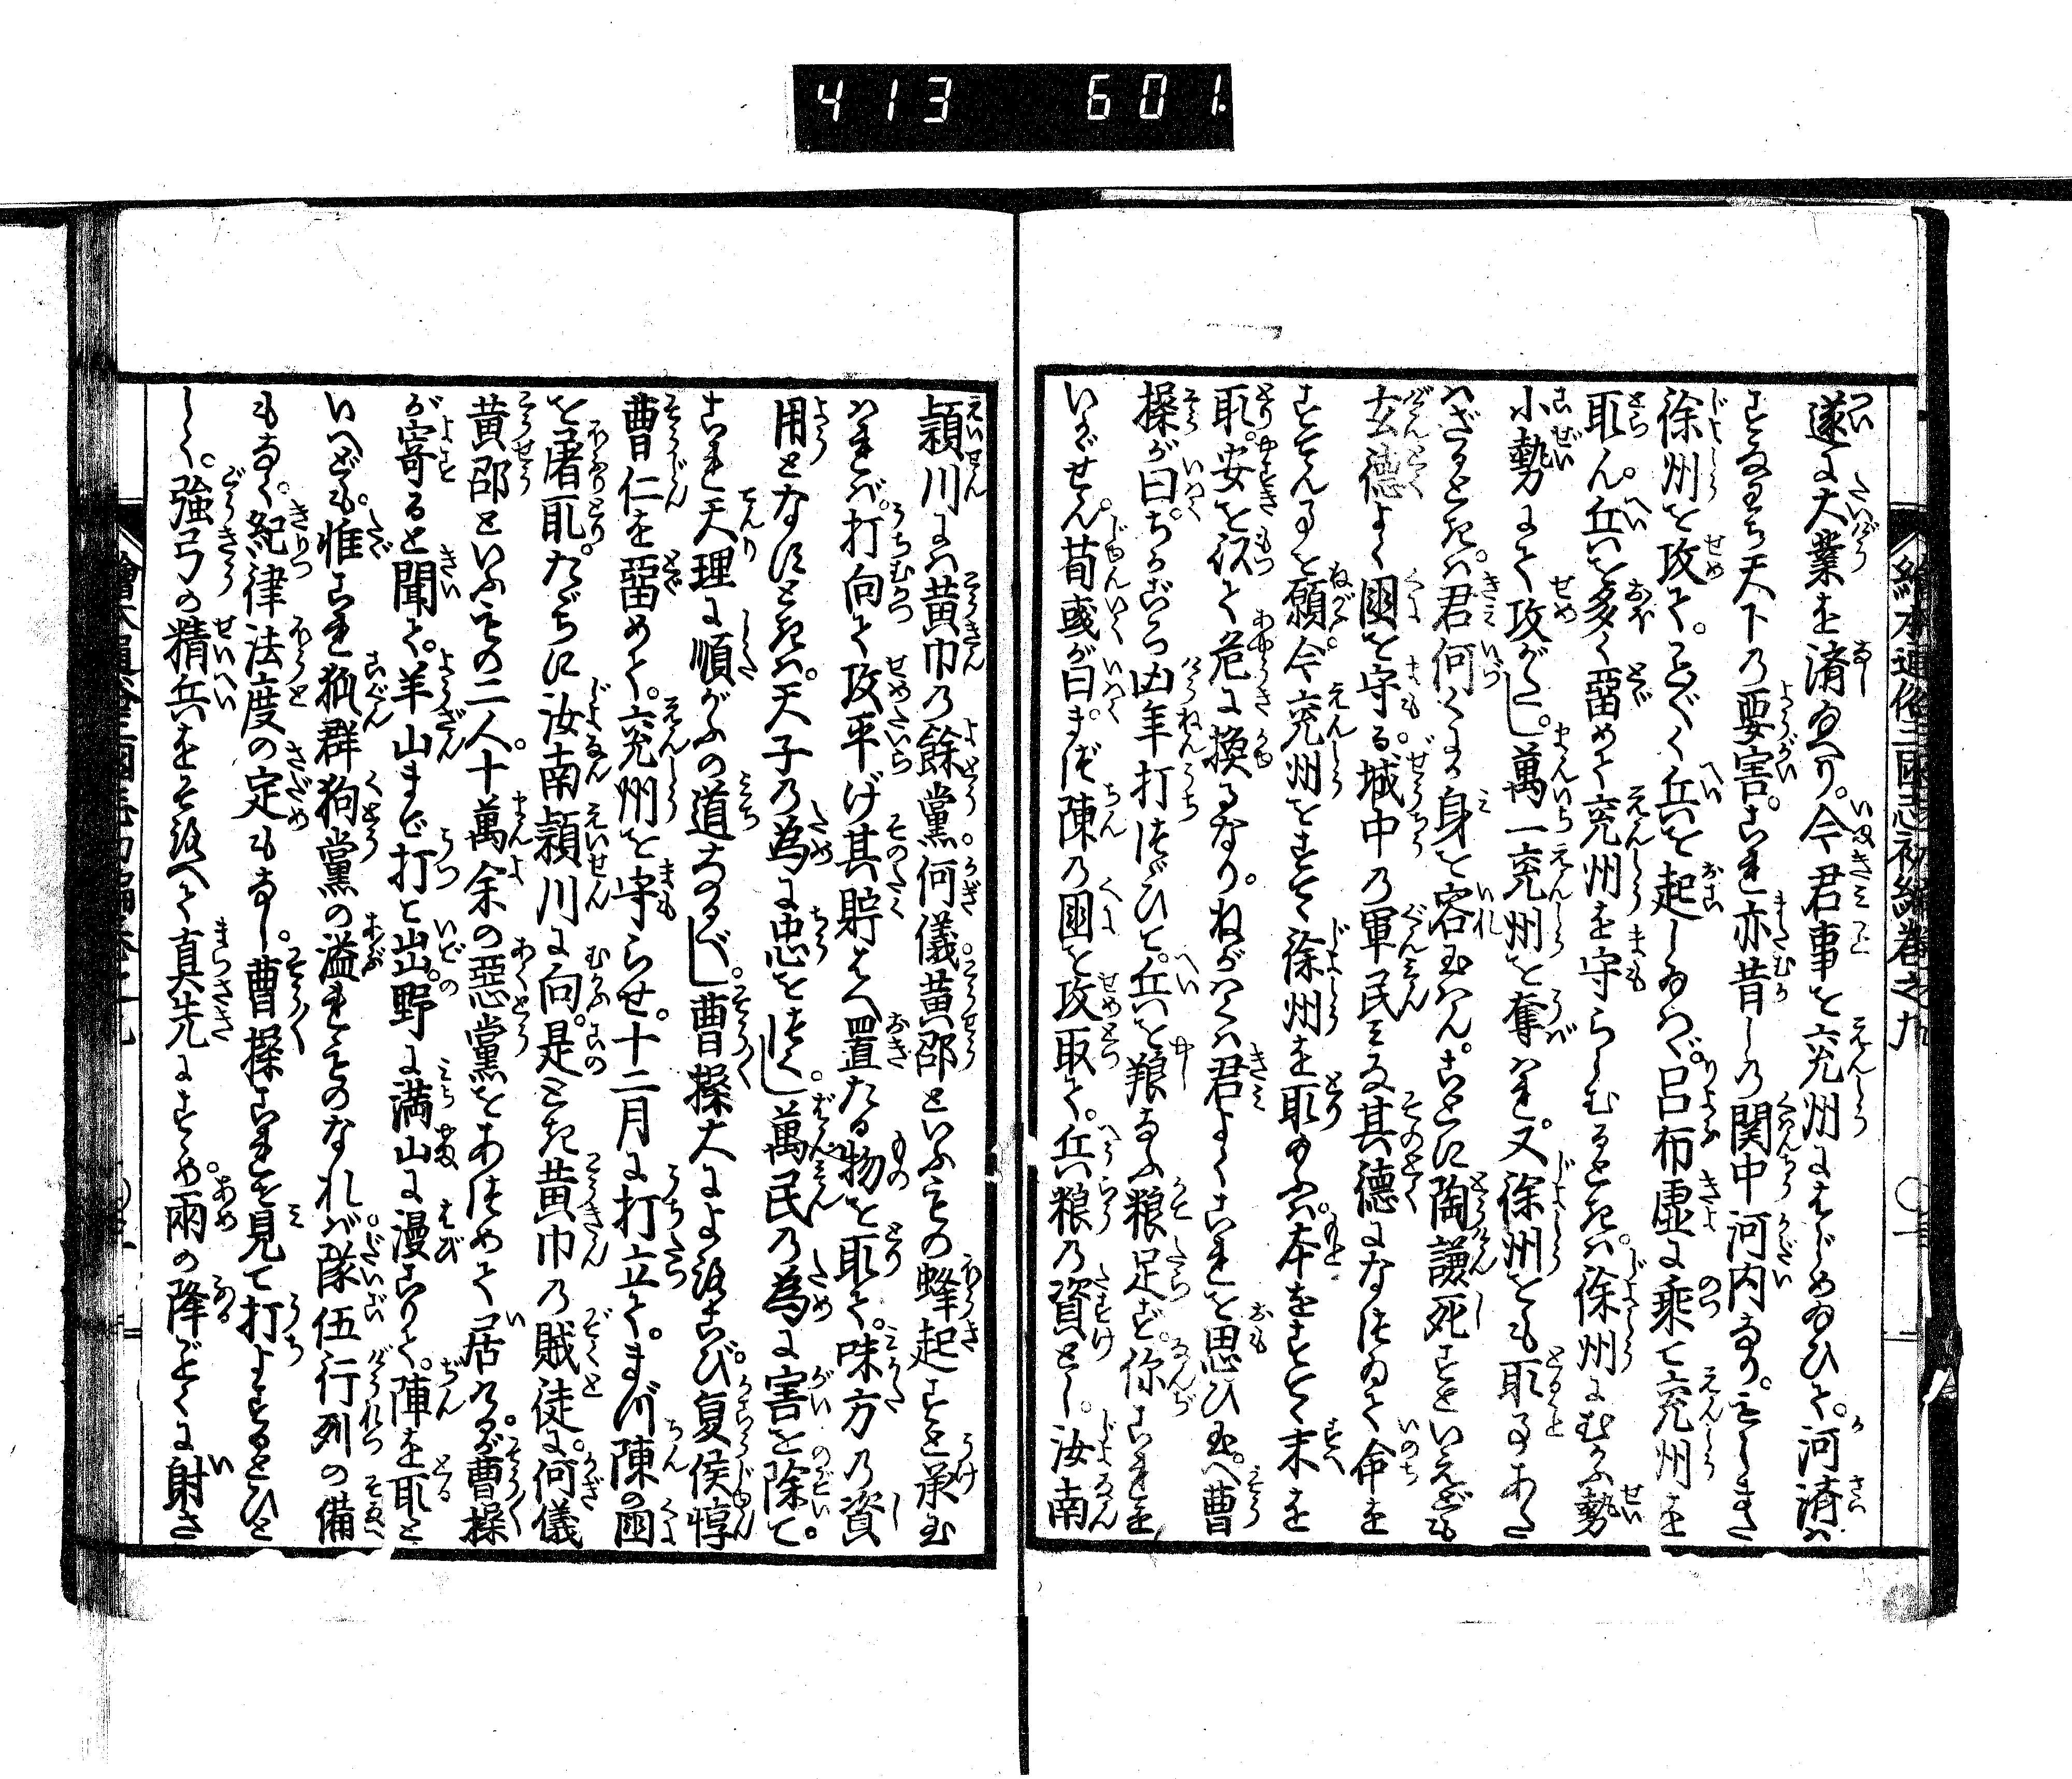 413 601.
繪本通俗三國志初編巻之九
遂に大業を済給へり。今君事を兗州にはじめ給ひて。河済は
すなはち天下の要害。これ亦昔しの関中河内なり。もしまた
徐州を攻て。ことごとく兵を起し給はゞ。呂布虚に乗て兗州を
取ん。兵を多く畱めて兗州を守らしむるときは。徐州にむかふ勢
小勢にて攻がたし。萬一兗州を奪はれ。又徐州をも取事あた
はざるときは。君何くにか身を容玉はん。ことに陶謙死すといへども
玄徳よく國を守る。城中の軍民みな其徳になつゐて命を
すてん事を願。今兗州をすてて徐州を取給ふは。本をすてて末を
取。安を以て危に換るなり。ねがはくは君よくこれを思ひ玉へ曹
操が曰。ちかごろ凶年打つゞひて。兵を粮なふ粮足ず。你これを
いかゞせん。荀彧が曰。まづ陳の國を攻取て。兵粮の資とし。汝南
頴川には黄巾の餘黨。何儀。黄邵といふもの蜂起すと承玉
はれば。打向て攻平げ其貯はへ置たる物を取て。味方の資
用となすときは。天子の為に忠をつくし。萬民の為に害を除て。
これ天理に順がふの道なるべし。曹操大によろこび。夏侯惇
曹仁を畱めて。兗州を守らせ。十二月に打立て。まづ陳の國
を屠取。たゞちに汝南頴川に向。是とき黄巾の賊徒。何儀
黄邵といふもの二人。十萬余の惡黨をあつめて居けるが。曹操
が寄ると聞て。羊山まで打と出。野に満山に漫りて。陣を取と
いへども。惟これ狐群狗黨の溢れものなれば。隊伍行列の備
もなく。紀律法度の定もなし。曹操これを見て打よするとひと
しく。強弓の精兵をそろへて真先にすゝめ。雨の降ごとくに射さ